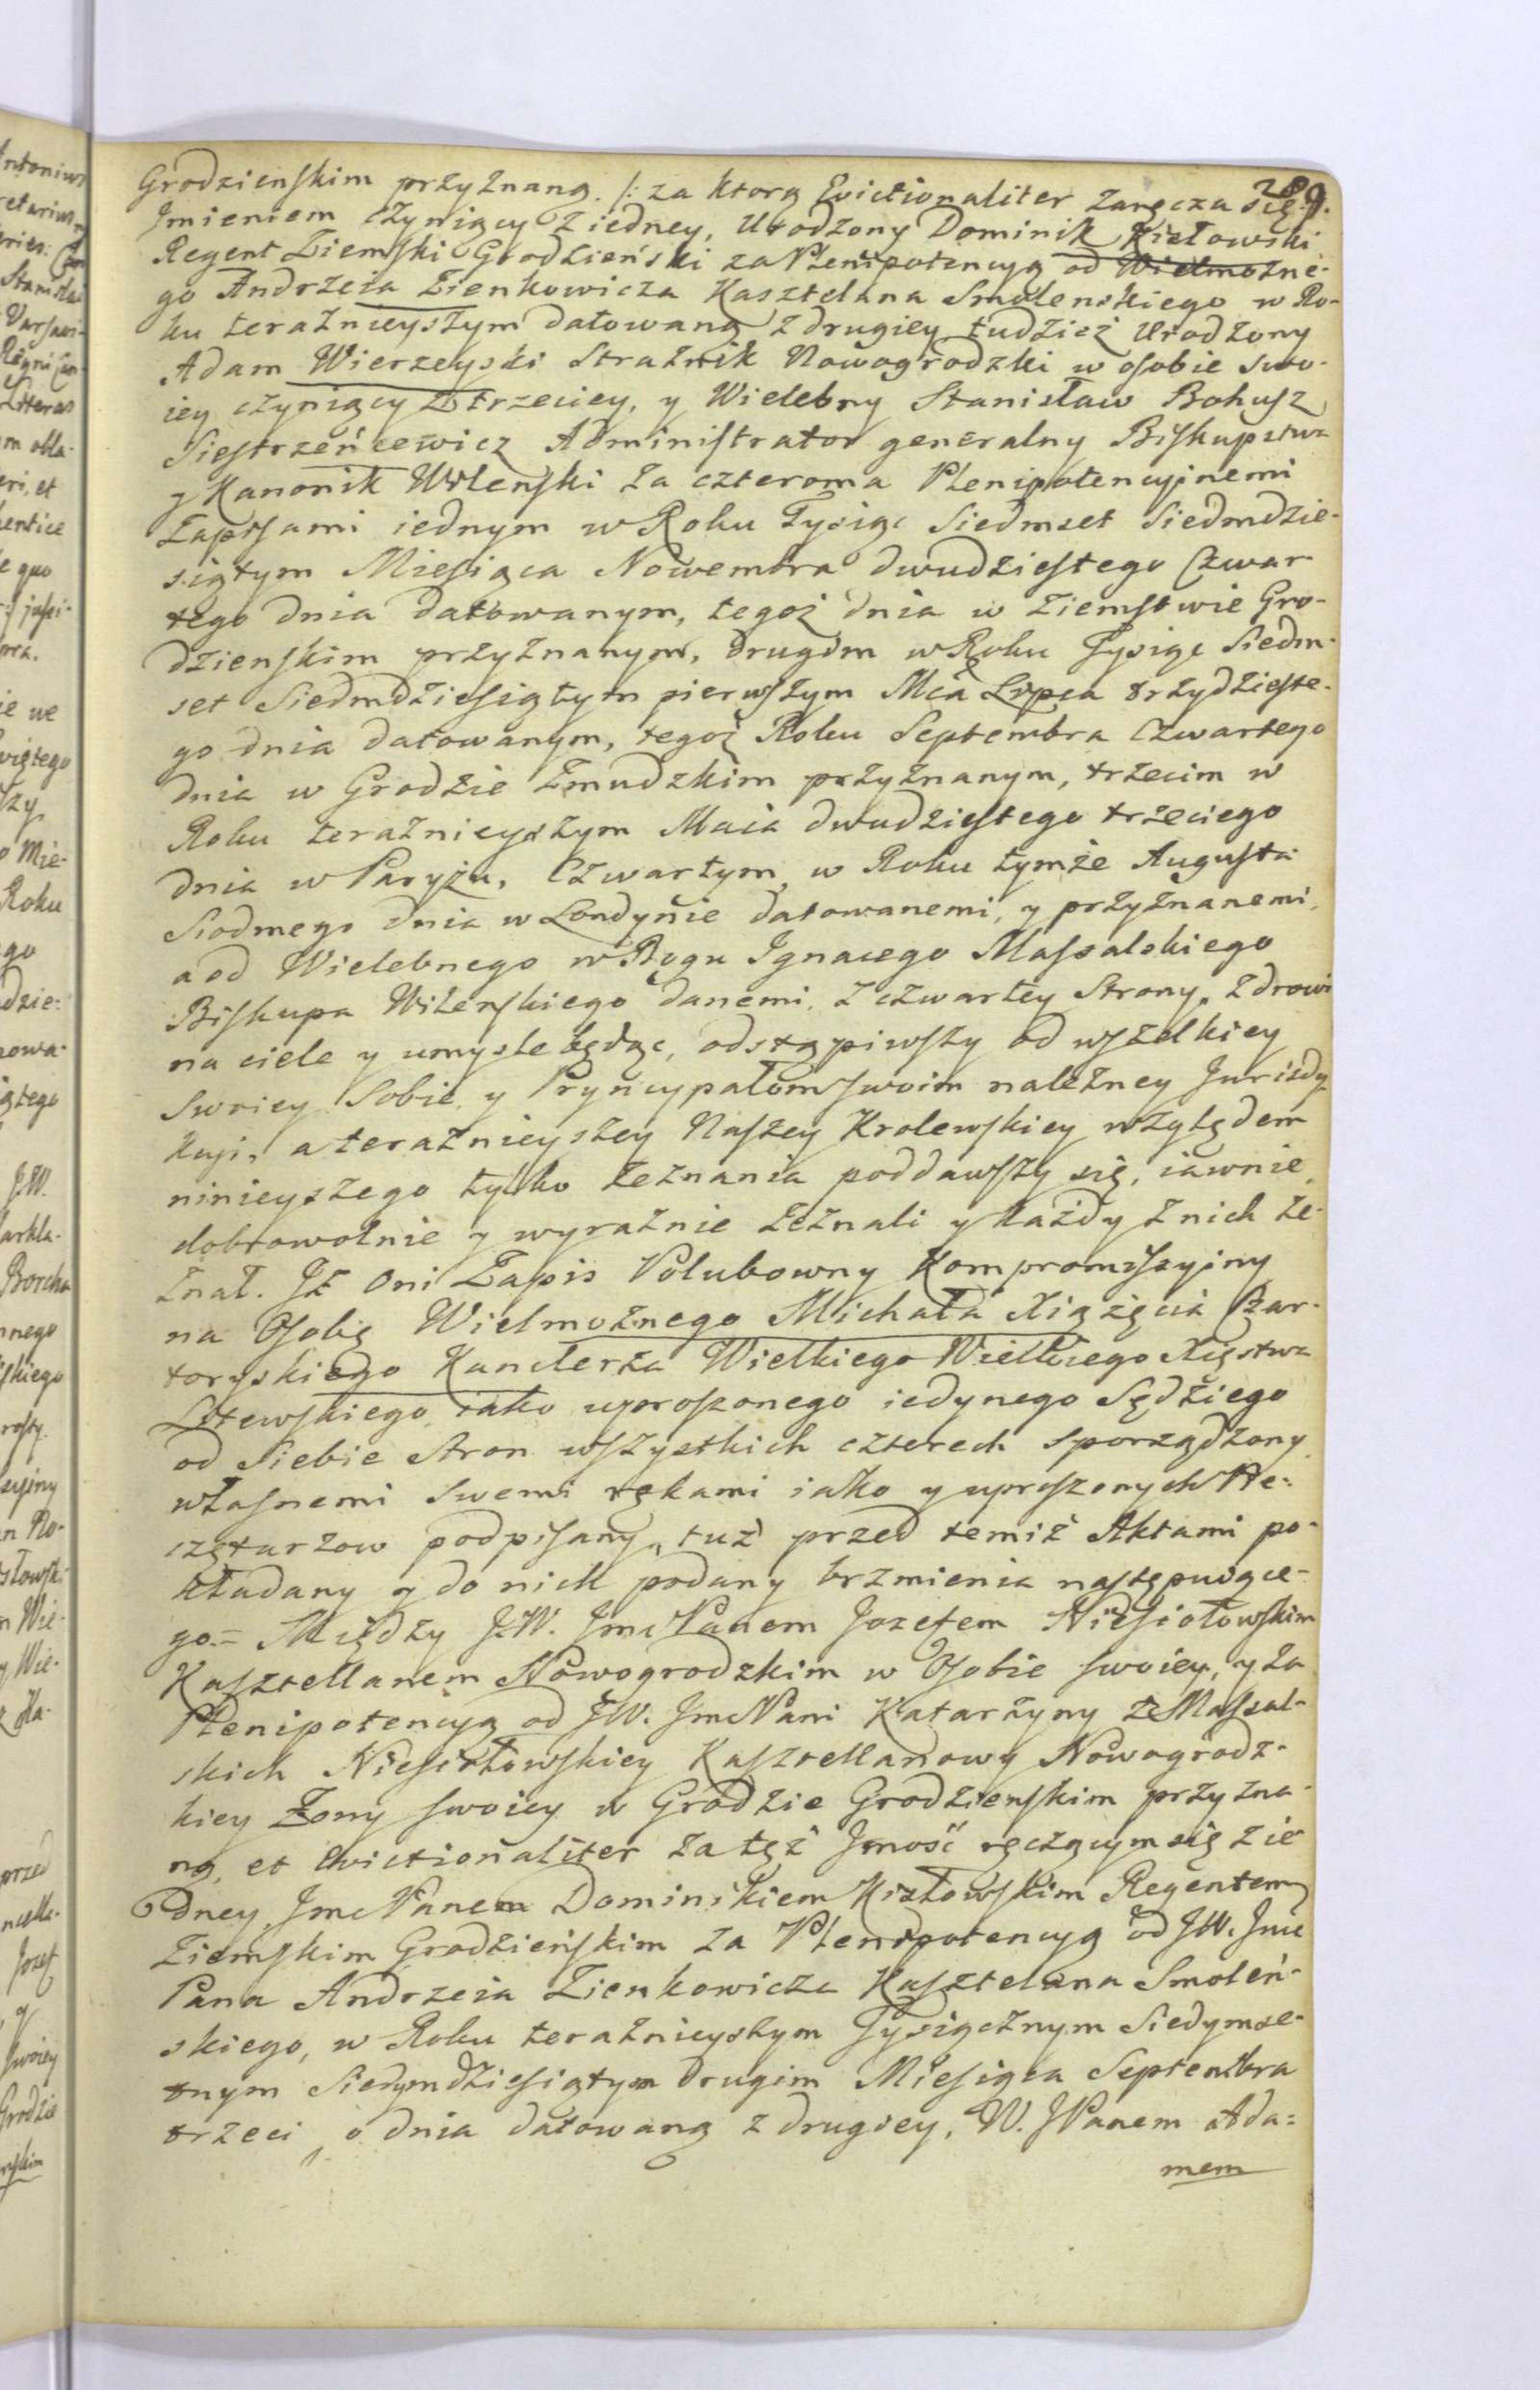 289.
Grodzienskim przyznaną. /: za ktorą Evictionaliter zaręcza się :/
Jmieniem czyniący z iedney, Urodzony Dominik Kisłowski
Regent Ziemski Grodzieński za Plenipotencyą od Wielmożne-
go Andrzeia Zienkowicza Kasztelana Smolenskiego w Ro-
ku teraznieyszym datowaną z drugiey, tudziesz Urodzony
Adam Wierzeyski Strażnik Nowogrodzki w osobie swo-
iey czyniący z trzeciey, y Wielebny Stanisław Bohusz
Siestrzeńcewicz Administrator generalny Biskupstwa
y Kanonik Wilenski za czteroma Plenipotencyinemi
Zapisami iednym w Roku Tysiąc Siedmset Siedmdzie-
siątym Miesiąca Nowembra dwudziestego Czwar
tego dnia datowanym, tegoż dnia w Ziemstwie Gro-
dzienskim przyznanym, drugim w Roku Tysiąc Siedm-
set Siedmdziesiątym pierwszym Mca Lipca trzydzieste-
go dnia datowanym, tegoż Roku Septembra Czwartego
dnia w Grodzie Zmudzkim przyznanym, trzecim w
Roku teraznieyszym Maia dwudziestego trzeciego
dnia w Paryżu, Czwartym w Roku tymże Augusta
Siodmego dnia w Londynie datowanemi, y przyznanemi,
a od Wielebnego w Bogu Ignacego Massalskiego
Biskupa Wilenskiego danemi, z czwartey Strony, zdrowi
na ciele y umysle będąc, odstąpiwszy od wszelkiey
Swoiey Sobie y Pryncypałom swoim należney Jurisdy
kcyi, a teraznieyszey Naszey Krolewskiey względem
ninieyszego tylko zeznania poddawszy się, iawnie,
dobrowolnie y wyraznie zeznali y każdy z nich ze-
znał. Jż oni Zapis Polubowny Kompromissyiny
na Osobę Wielmożnego Michała Xiążęcia Czar-
toryskiego Kanclerza Wielkiego Wielkiego Xięstwa
Litewskiego iako uproszonego iedynego Sędziego
od Siebie Stron wszystkich czterech sporządzony
własnemi Swemi rękami iako y uproszonych Pie-
czętarzow podpisany, tuż przed temiż Aktami po-
kładany y do nich podany brzmienia następuiące-
go.= Między J.W. Jmc Panem Jozefem Niesiołowskim
Kasztellanem Nowogrodzkim w Osobie swoiey, y za
Plenipotencyą od J.W. Jmc Pani Katarzyny z Massal-
skich Niesiołowskiey Kasztellanowy Nowogrodz-
kiey Żony swoiey w Grodzie Grodzienskim przyzna-
ną, et Evictionaliter za tęż Jmość ręczącym się z ie
dney, Jmc Panem Dominikiem Kisłowskim Regentem
Ziemskim Grodzieńskim za Plenipotencyą od J.W. Jmc
Pana Andrzeia Zienkowicza Kasztelana Smoleń-
skiego, w Roku teraznieyszym Tysiącznym Siedymse-
tnym Siedymdziesiątym drugim Miesiąca Septembra
trzeci o dnia datowaną z drugiey, W. JPanem Ada=
mem